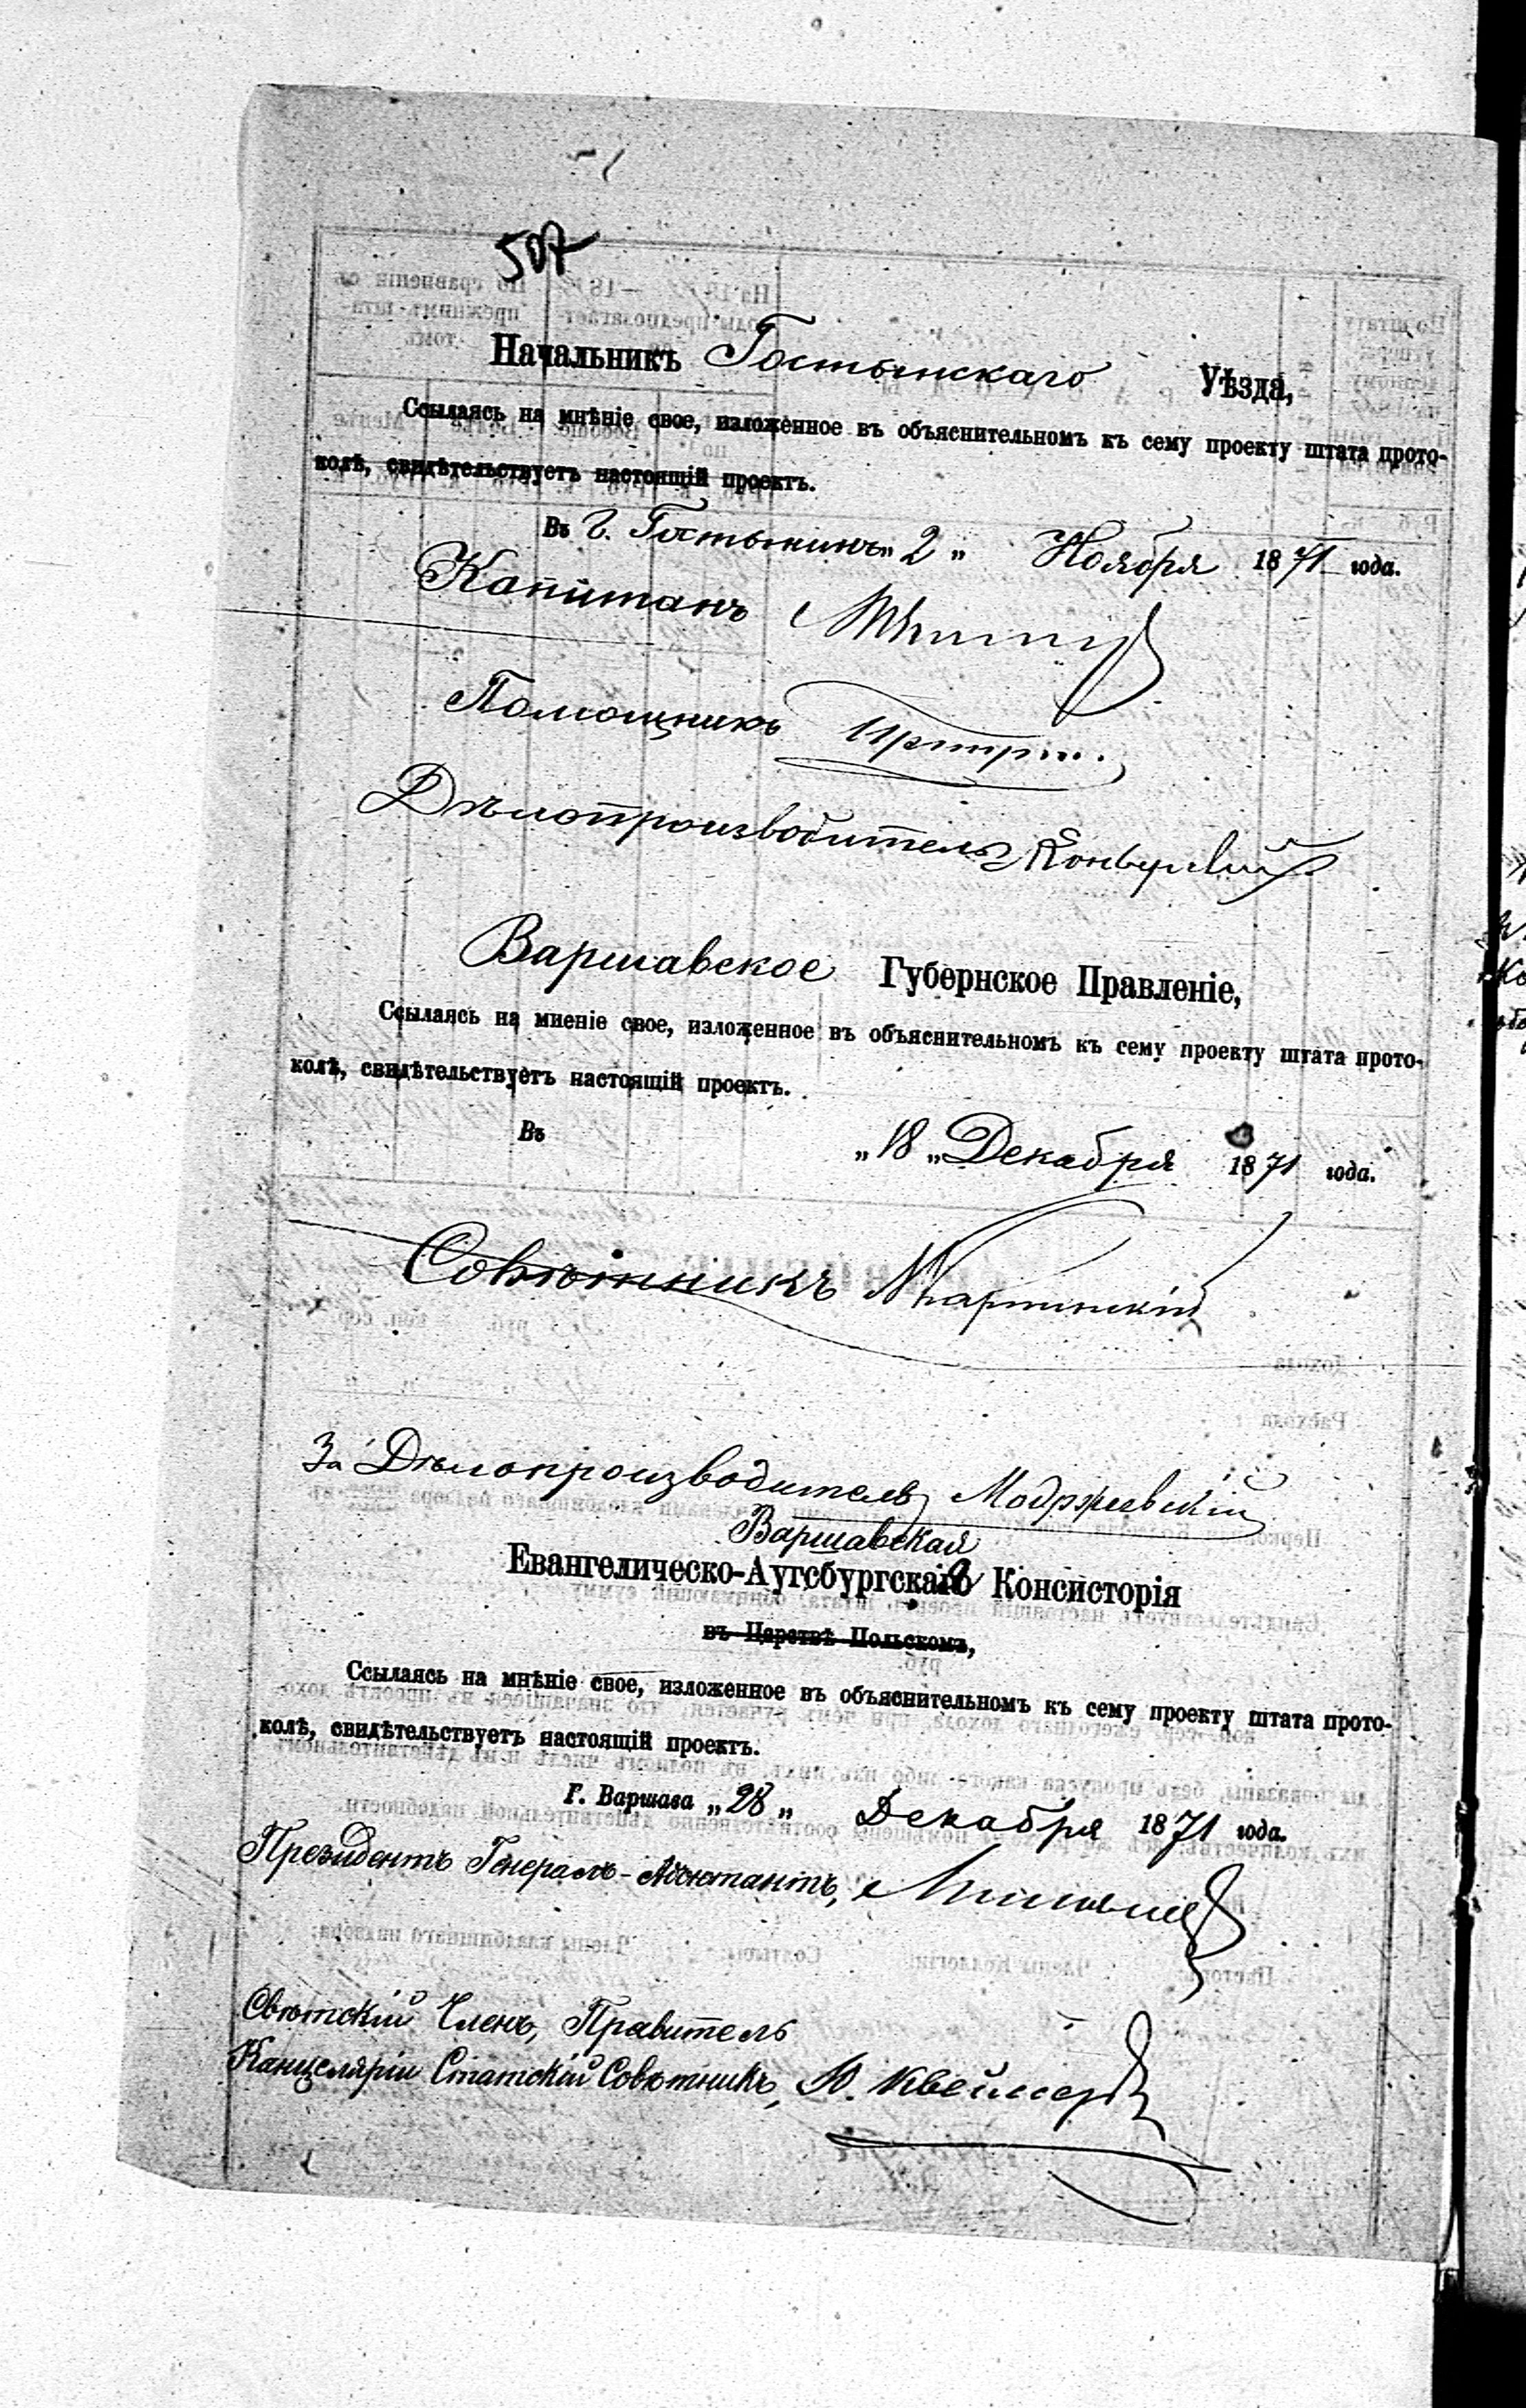 507
Начальникъ Гостынскаго Уѣзда,
Ссылаясь на мнѣніе свое, изложенное въ объяснительномъ къ сему проекту штата прото-
колѣ, свидѣтельствуетъ настоящій проектъ.
Въ г. Гостынинъ „ 2 „ Ноября 1871 года.
Капитанъ
Помощникъ
Дѣлопроизводитель
Варшавское Губернское Правленіе,
Ссылаясь на мненіе свое, изложенное въ объяснительномъ къ сему проекту штата прото-
колѣ, свидѣтельствуетъ настоящій проектъ.
Въ „ 18 „ Декабря 1871 года.
Совѣтникъ
За Дѣлопроизводителя Модржеевскій
Варшавская
Евангелическо-Аугсбургская Консисторія
въ Царствѣ Польскомъ,
Ссылаясь на мнѣніе свое, изложенное въ объяснительномъ къ сему проекту штата прото-
колѣ, свидѣтельствуетъ настоящій проектъ.
Г. Варшава „ 28 „ Декабря 1871 года.
Президентъ Генералъ-Адъютантъ,
Свѣтскій Членъ, Правитель
Канцеляріи Статскій Совѣтникъ,